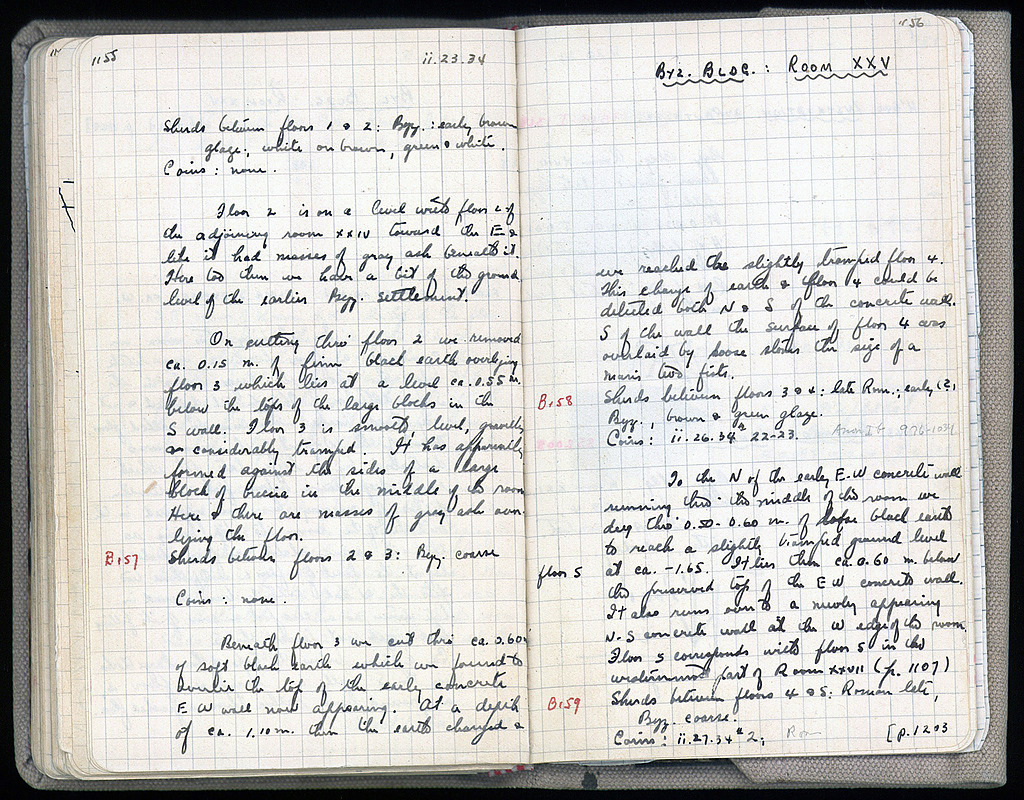 1155
ii.23.34
Sherds between floors 1 & 2: Byz.: early brown
glaze; white on brown, green & white.
Coins: none.
Floor 2 is on a level with floor 2 of
the adjoining room XXIV toward the E &
like it had masses of gray ash beneath it.
Here too then we have a bit of the ground
level of the earlier Byz. settlement.
On cutting thro' floor 2 we removed
ca. 0.15 m. of firm black earth overlying
floor 3 which lies at a level ca. 0.55 m.
below the tops of the large blocks in the
S wall. Floor 3 is smooth, level, gravelly
considerably tramped. It has apparently
formed against the sides of a large
block of breccia in the middle of the room
Here & there are masses of gray ash over-
lying the floor.
B157
Sherds between floors 2 & 3: Byz. coarse
Coins: none.
Beneath floor 3 we cut thro' ca. 0.60
of soft black earth which we found to
overlie the top of the early concrete
E W wall now appearing. At a depth
of ca. 1.10 m. then the earth changed &
1156
Byz. Bldg.: Room XXV
we reached the slightly tramped floor 4.
This change of earth & floor 4 could be
detected both N & S of the concrete wall.
S of the wall the surface of floor 4 was
overlaid by loose stones the size of a
man's two fists.
B158
Sherds between floors 3 & 4: late Rom.; early (?)
Byz., brown & green glaze.
Coins: ii.26.34 # 22-23.
To the N of the early E-W concrete wall
running thro' the middle of the room we
dug thro' 0.50-0.60 m. of loose black earth
to reach a slightly tramped ground level
floor 5
at ca. -1.65. It lies then ca. 0.60 m. below
the preserved top of the E W concrete wall.
It also runs over to a newly appearing
N-S concrete wall at the W edge of the room.
Floor 5 corresponds with floor 5 in the
westernmost part of Room XXVII (p. 1107)
B159
Sherds between floors 4 & 5: Roman late,
Byz. coarse.
Coins: ii.27.34 # 2; Rom
[p. 1203